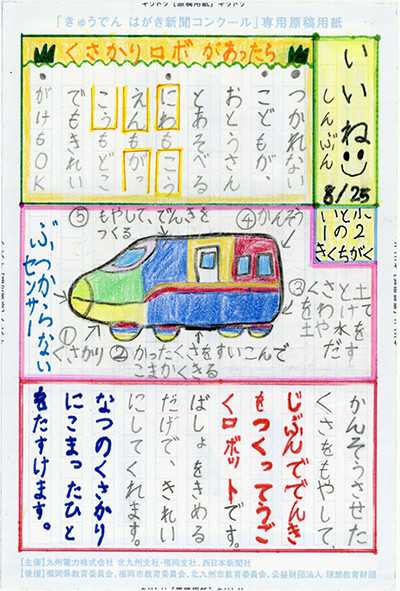 「きゅうでん はがき新聞コンクール」専用原稿用紙
いいね
しんぶん
8/25
くさかりロボがあったら
つかれない
こどもが、
おとうさん
とあそべる
にわもこう
えんもがっ
こうもどこ
でもきれい
がけもOK
ぶつからない
センサー
①くさかり
②かったくさをすいこんで
こまかくきる
④かんそう
⑤もやして、でんきを
つくる
かんそうさせた
くさをもやして、
じぶんででんき
をつくってうご
くロボットです。
ばしょをきめる
だけで、きれい
にしてくれます。
なつのくさかり
にこまったひと
をたすけます。
【主催】九州電力株式会社 北九州支社・福岡支社、西日本新聞社
【後援】福岡県教育委員会、福岡市教育委員会、北九州市教育委員会、公益財団法人 理想教育財団